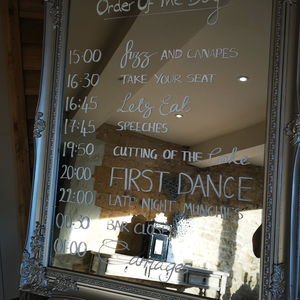 Order Of The Day
15:00 fizz AND CANAPES
16:30 TAKE YOUR SEAT
16:45 Lets Eat
17:45 SPEECHES
19:50 CUTTING OF THE Cake
20:00 FIRST DANCE
22:00 LATE NIGHT MUNCHIES
00:30 BAR CLOSES
01:00 Carriages